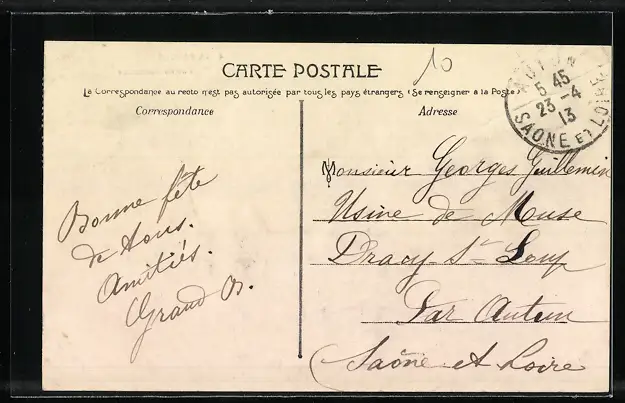 CARTE POSTALE
10
La Correspondance au recto n'est pas autorisée par tous les pays étrangers (Se renseigner à la Poste)
Correspondance
Adresse
AUTUN
5 45
23 - 4
13
SAONE ET LOIRE
Bonne fête
de tous.
Amitiés.
Grand
Monsieur Georges Guillemin
Usine de
Dracy St Loup
Par Autun
Saône et Loire